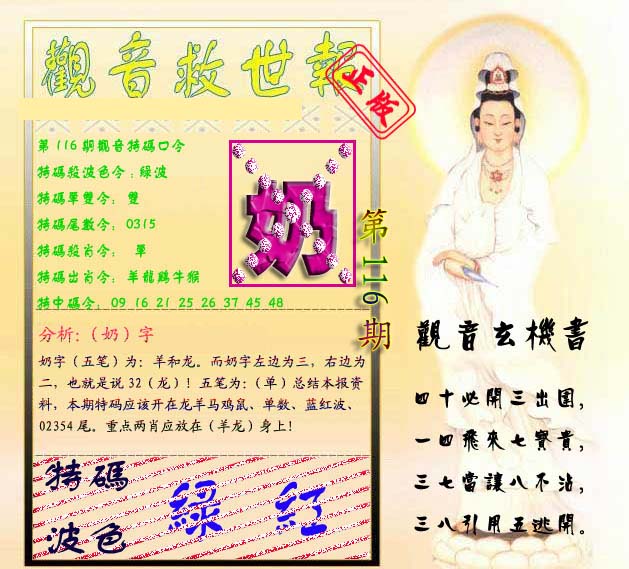 觀音救世報
正版
第116期觀音特碼口令
特碼殺波色令:綠波
特碼單雙令: 雙
特碼尾數令: 0315
特碼殺肖令: 單
特碼出肖令: 羊龍鷄牛猴
特中碼令: 09 16 21 25 26 37 45 48
奶
第116期
分析:(奶)字
奶字(五笔)为:羊和龙。而奶字左边为三,右边为
二,也就是说32(龙)!五笔为:(单)总结本报资
料,本期特码应该开在龙羊马鸡鼠、单数、蓝红波、
02354尾。重点两肖应放在(羊龙)身上!
特碼
波色
綠 紅
觀音玄機書
四十必開三出国,
一四飛來七寳貴,
三七當讓八不沾,
三八引用五逃開。